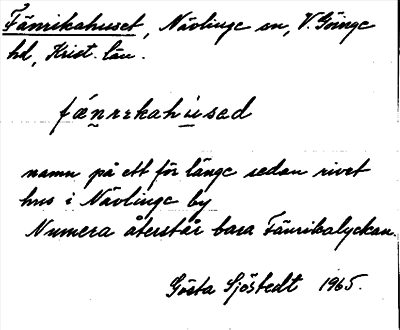 Fänrikahuset, Nävlinge sn, V. Göinge
hd, Krist. län.
fánrekahúsad
namn på ett för länge sedan rivet
hus i Nävlinge by
Numera återstår bara Fänrikalyckan.
Gösta Sjöstedt 1965.